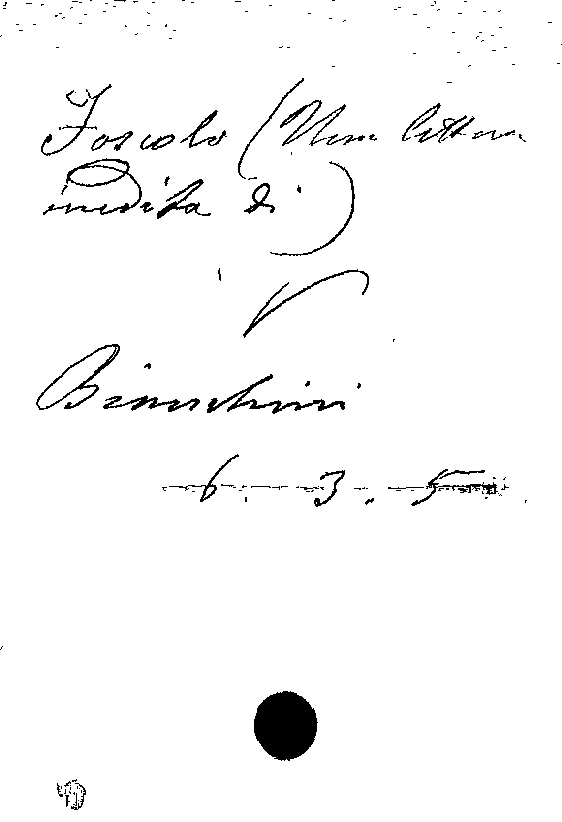 Foscolo (Una lettera
inedita di)
V
Bianchini
6. 3. 5